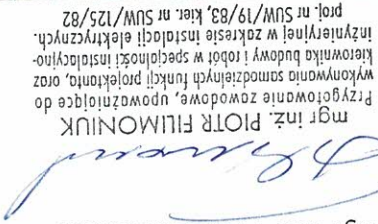 mgr inż. PIOTR FILIMONIUK
Przygotowanie zawodowe, upoważniające do
wykonywania samodzielnych funkcji projektanta, oraz
kierownika budowy i robót w specjalności instalacyjno-
inżynieryjnej w zakresie instalacji elektrycznych.
proj. nr SUW/19/83, kier. nr SUW/125/82